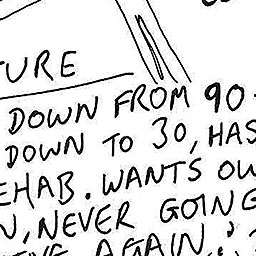 TURE
DOWN FROM 90
DOWN TO 30, HAS
EHAB. WANTS OU
N, NEVER GOING
AGAIN